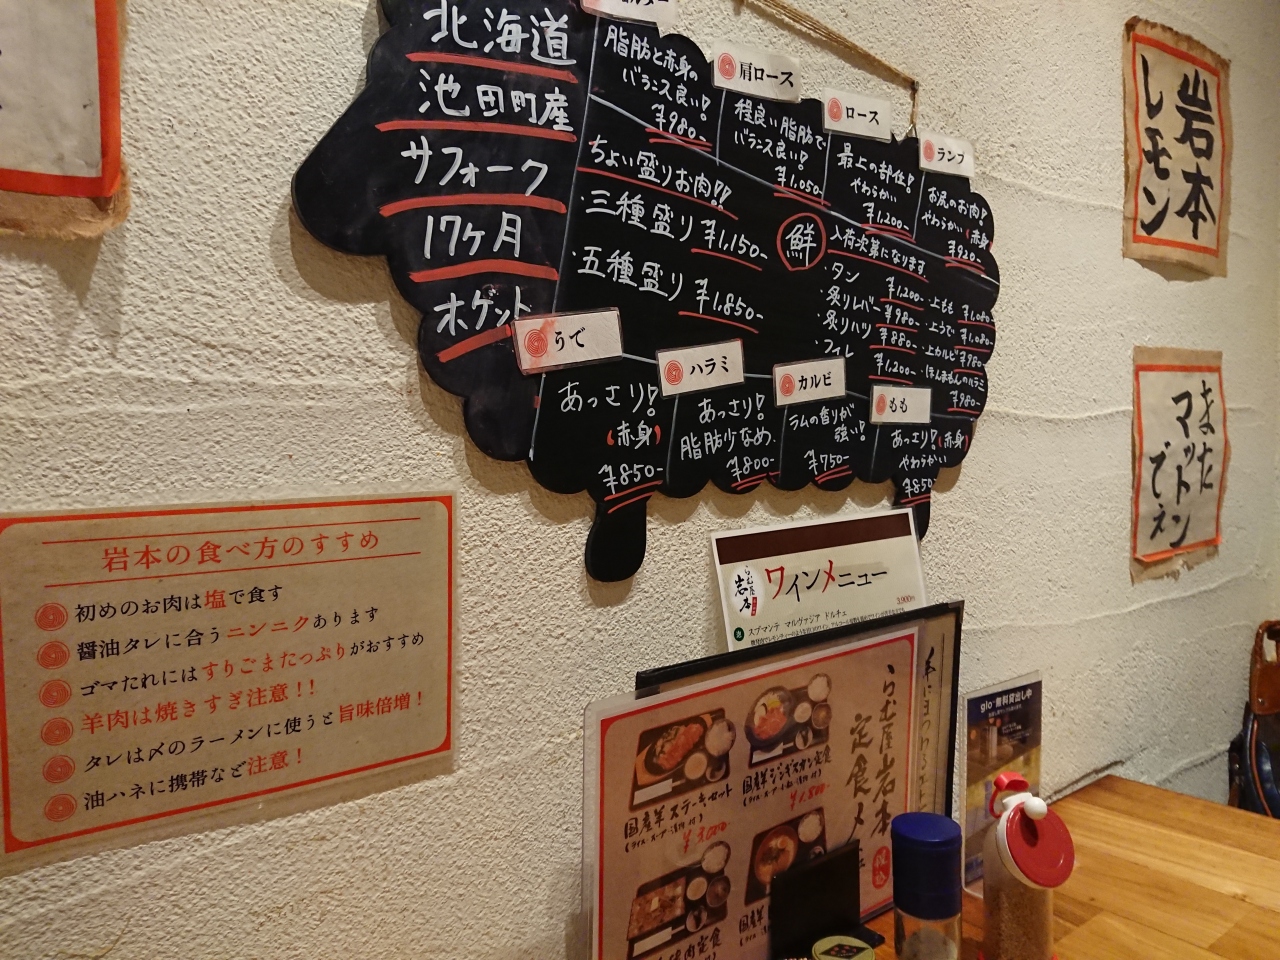 北海道
池田町産
サフォーク
17ヶ月
ホゲット
脂肪と赤身の
バランス良い!
¥980-
肩ロース
程良い脂肪で
バランス良い!
¥1,050-
ロース
最上の部位!
やわらかい
¥1,200-
ランプ
お尻のお肉!
やわらかい(赤身)
¥920-
ちょい盛りお肉!!
・三種盛り ¥1,150-
・五種盛り ¥1,850-
鮮
入荷次第になります。
・タン ¥1,200-
・炙りレバー ¥980-
・炙りハツ ¥880-
・フィレ ¥1,200-
・上もも ¥1,080-
・上うで ¥1,080-
・上カルビ ¥980-
・ほんまもんのハラミ ¥980-
うで
あっさり!
(赤身)
¥850-
ハラミ
あっさり!
脂肪少なめ。
¥800-
カルビ
ラムの香りが
強い!
¥750-
もも
あっさり!(赤身)
やわらかい
¥850-
岩本
レモン
またマットンでえ
岩本の食べ方のすすめ
初めのお肉は塩で食す
醤油タレに合うニンニクあります
ゴマたれにはすりごまたっぷりがおすすめ
羊肉は焼きすぎ注意!!
タレは〆のラーメンに使うと旨味倍増!
油ハネに携帯など注意!
らむ屋
岩本
ワインメニュー
3,900円
スプマンテ マルヴァジア ドルチェ
らむ屋岩本
定食メ
税込
国産羊ステーキセット
(ライス・スープ・漬物付)
¥3,000-
国産羊ジンギスカン定食
¥1,800-
glo™無料貸出し中